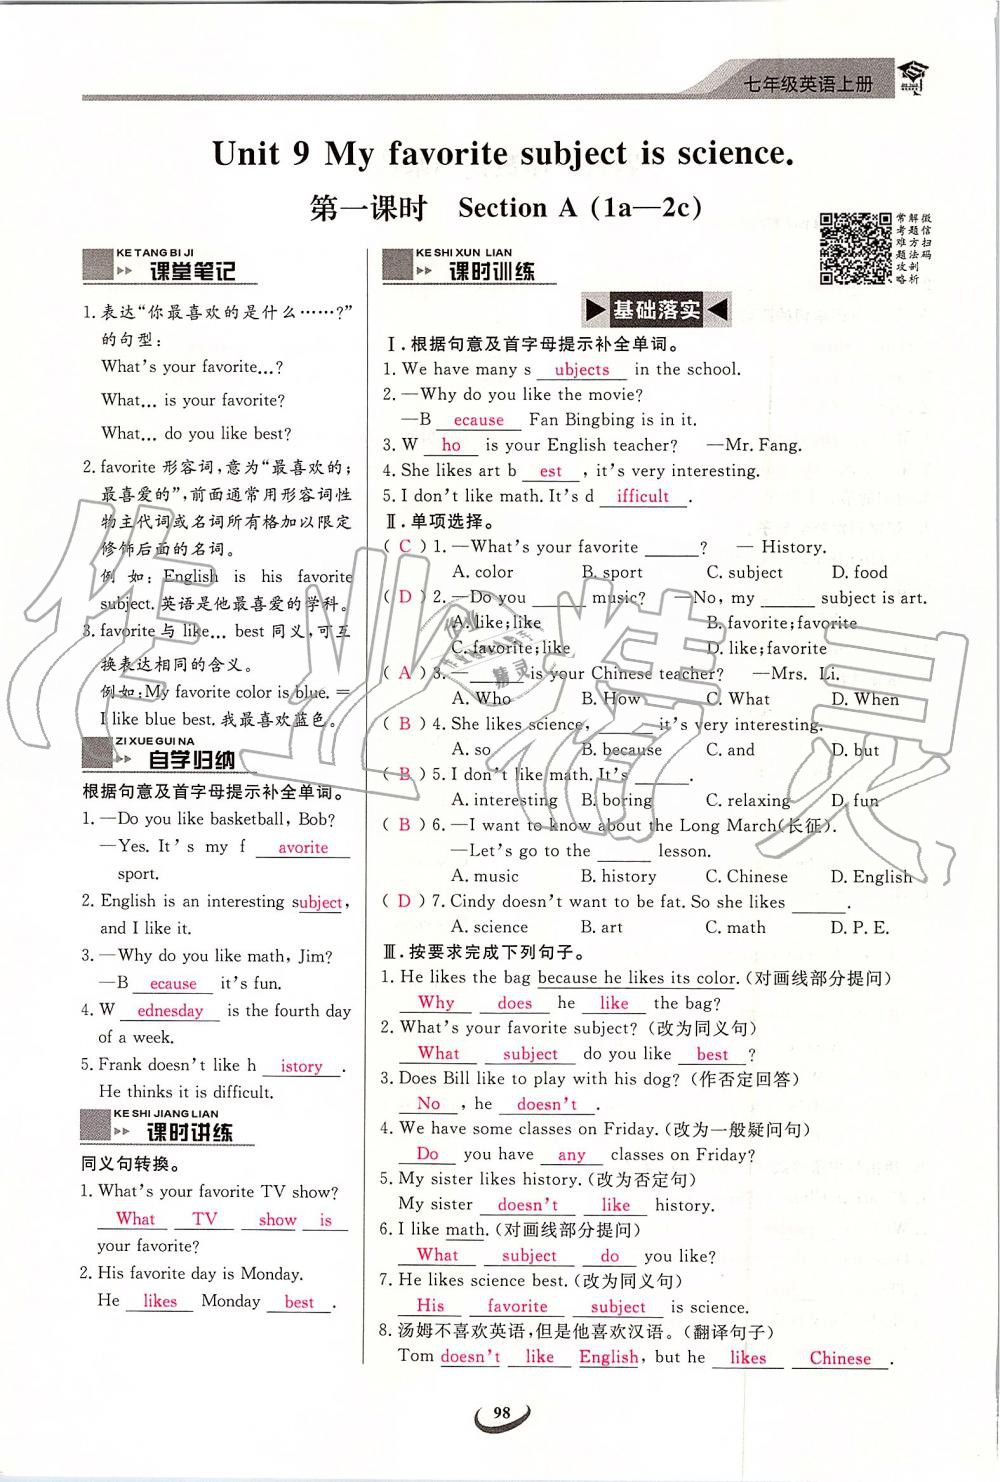 七年级英语上册
Unit 9 My favorite subject is science.
第一课时 Section A (1a—2c)
常考难题攻略
解题方法剖析
微信扫码
KE TANG BI JI
课堂笔记
1. 表达“你最喜欢的是什么……?”
的句型:
What's your favorite...?
What... is your favorite?
What... do you like best?
2. favorite 形容词,意为“最喜欢的;
最喜爱的”,前面通常用形容词性
物主代词或名词所有格加以限定
修饰后面的名词。
例如:English is his favorite
subject. 英语是他最喜爱的学科。
3. favorite 与 like... best 同义,可互
换表达相同的含义。
例如:My favorite color is blue. =
I like blue best. 我最喜欢蓝色。
ZI XUE GUI NA
自学归纳
根据句意及首字母提示补全单词。
1. —Do you like basketball, Bob?
—Yes. It's my f avorite
sport.
2. English is an interesting subject,
and I like it.
3. —Why do you like math, Jim?
—B ecause it's fun.
4. W ednesday is the fourth day
of a week.
5. Frank doesn't like h istory .
He thinks it is difficult.
KE SHI JIANG LIAN
课时讲练
同义句转换。
1. What's your favorite TV show?
What TV show is
your favorite?
2. His favorite day is Monday.
He likes Monday best .
KE SHI XUN LIAN
课时训练
基础落实
Ⅰ. 根据句意及首字母提示补全单词。
1. We have many s ubjects in the school.
2. —Why do you like the movie?
—B ecause Fan Bingbing is in it.
3. W ho is your English teacher? —Mr. Fang.
4. She likes art b est , it's very interesting.
5. I don't like math. It's d ifficult .
Ⅱ. 单项选择。
( C )1. —What's your favorite ______? — History.
A. color B. sport C. subject D. food
( D )2. —Do you ______ music? —No, my ______ subject is art.
A. like;like B. favorite;favorite
C. favorite;like D. like;favorite
( A )3. —______ is your Chinese teacher? —Mrs. Li.
A. Who B. How C. What D. When
( B )4. She likes science, ______ it's very interesting.
A. so B. because C. and D. but
( B )5. I don't like math. It's ______.
A. interesting B. boring C. relaxing D. fun
( B )6. —I want to know about the Long March(长征).
—Let's go to the ______ lesson.
A. music B. history C. Chinese D. English
( D )7. Cindy doesn't want to be fat. So she likes ______.
A. science B. art C. math D. P. E.
Ⅲ. 按要求完成下列句子。
1. He likes the bag because he likes its color. (对画线部分提问)
Why does he like the bag?
2. What's your favorite subject? (改为同义句)
What subject do you like best ?
3. Does Bill like to play with his dog? (作否定回答)
No , he doesn't .
4. We have some classes on Friday. (改为一般疑问句)
Do you have any classes on Friday?
5. My sister likes history. (改为否定句)
My sister doesn't like history.
6. I like math. (对画线部分提问)
What subject do you like?
7. He likes science best. (改为同义句)
His favorite subject is science.
8. 汤姆不喜欢英语,但是他喜欢汉语。(翻译句子)
Tom doesn't like English, but he likes Chinese .
98
作业精灵